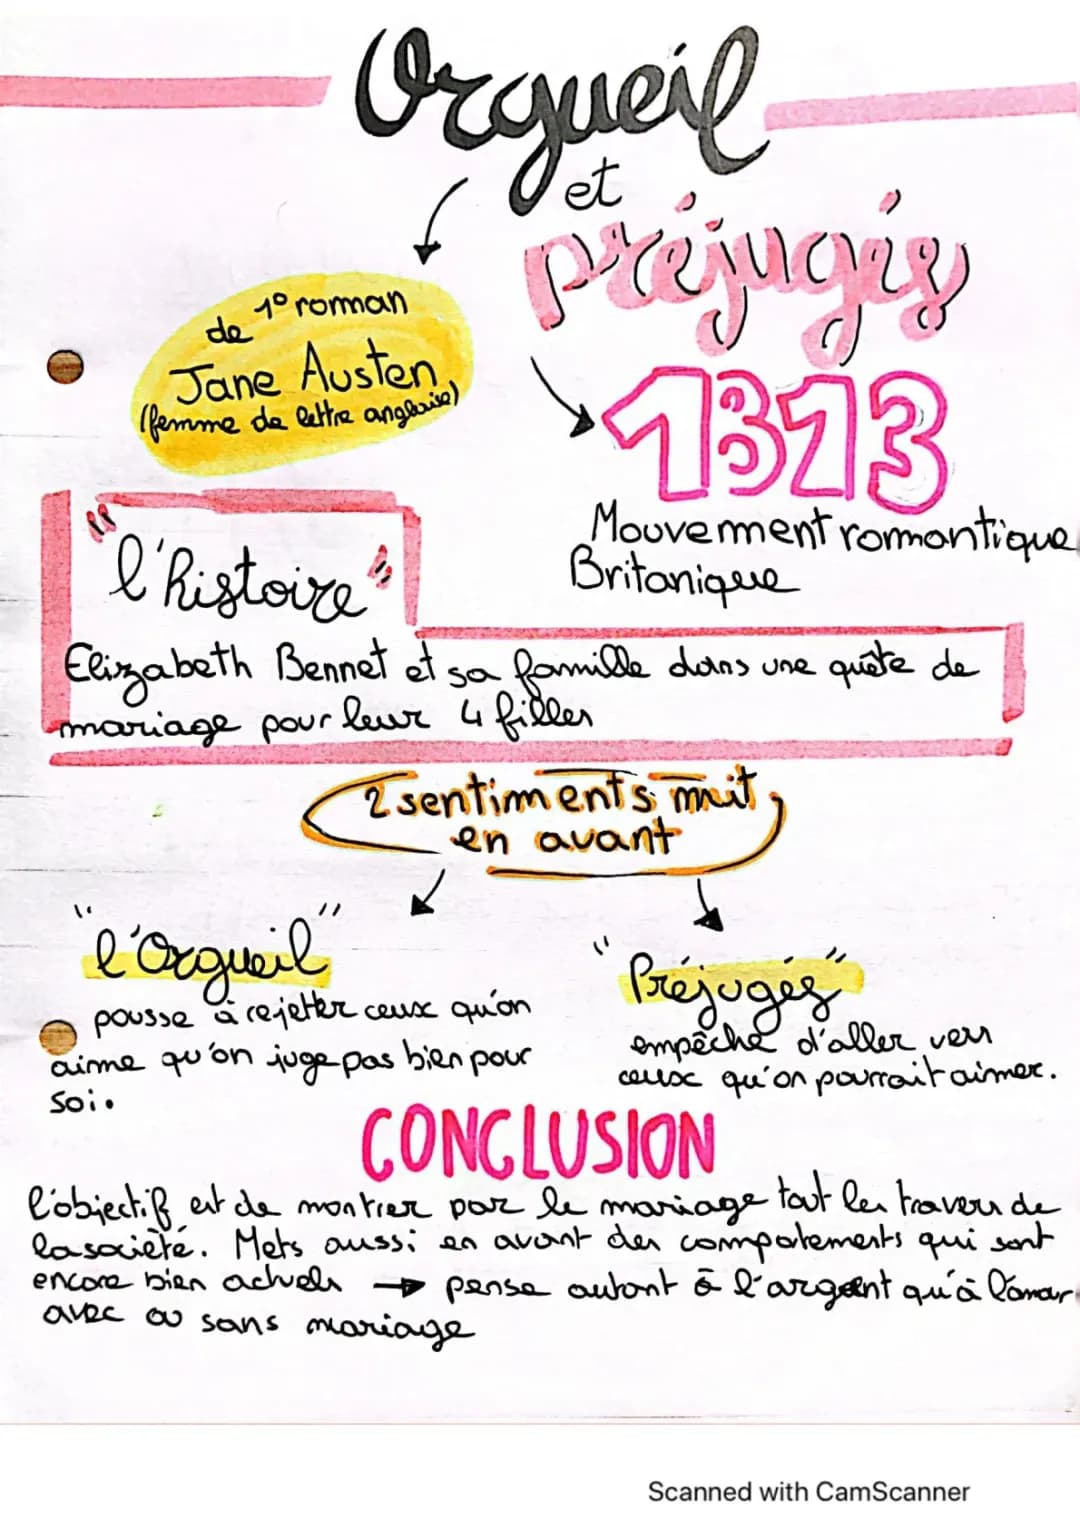 Orgueil
et
préjugés
1° roman
de
Jane Austen
(femme de lettre anglaise)
1313
Mouvement romantique
Britanique
"l'histoire"
Elizabeth Bennet et sa famille dans une quête de
mariage pour leur 4 filles
2 sentiments muit
en avant
"l'Orgueil"
pousse à rejetter ceux qu'on
aime qu'on juge pas bien pour
soi.
"Préjugés"
empêche d'aller vers
ceux qu'on pourrait aimer.
CONCLUSION
l'objectif est de montrer par le mariage tout les travers de
la société. Mets aussi en avant des comportements qui sont
encore bien actuels → pense autant à l'argent qu'à l'amar
avec ou sans mariage
Scanned with CamScanner